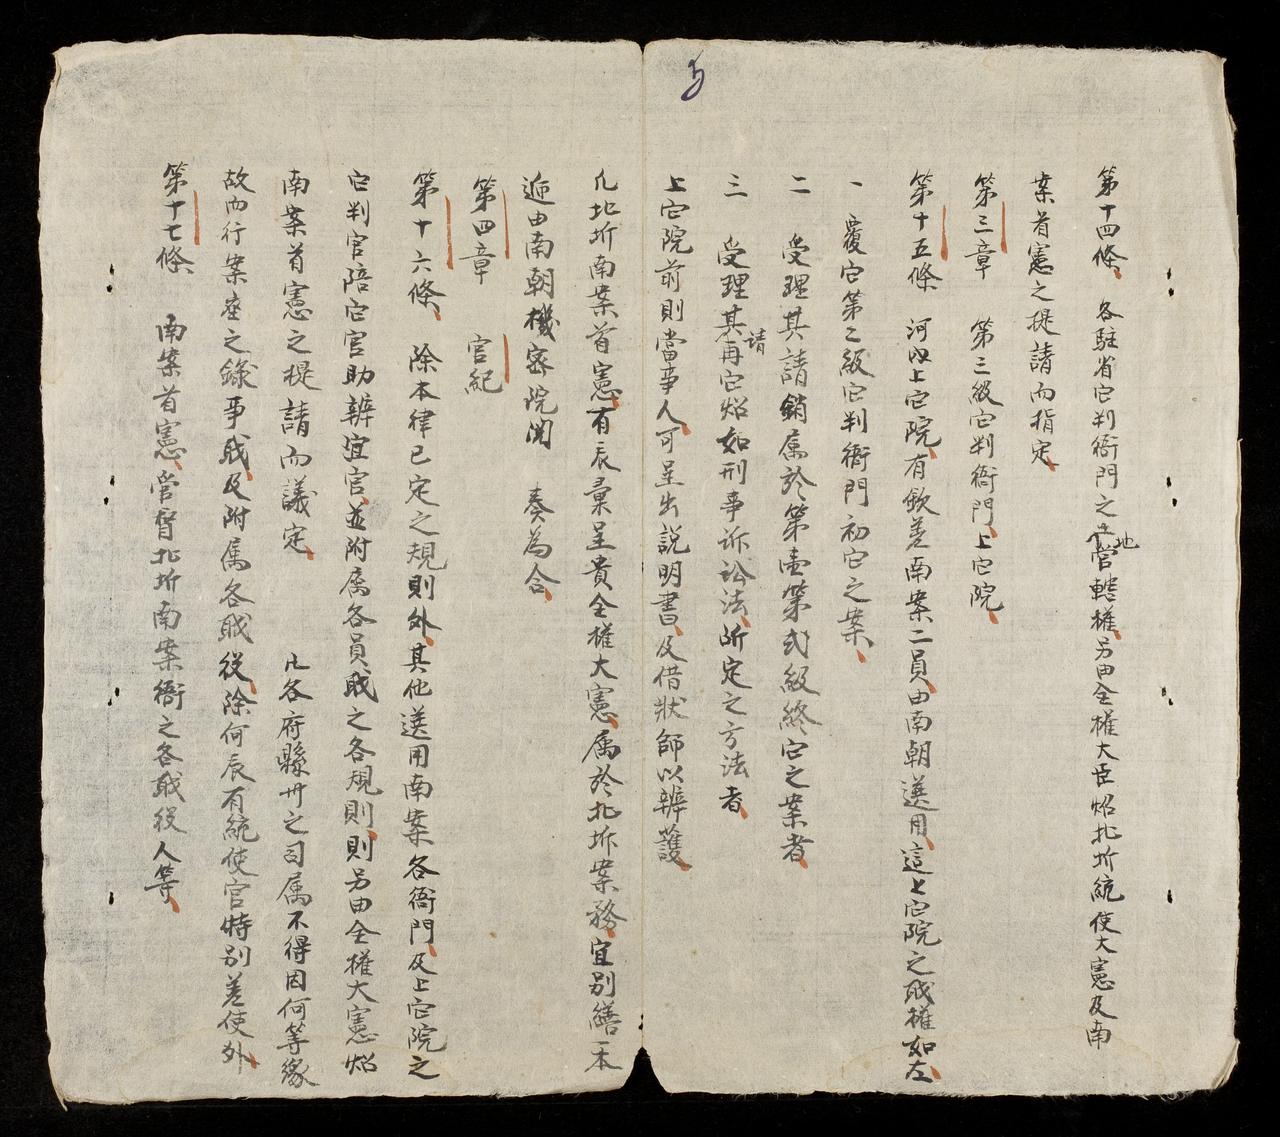 5
第十四條、各駐省官判衙門之土地管轄權、另由全權大臣炤北圻統使大憲及南
案首憲之提請而指定、
第三章 第三級官判衙門、上官院、
第十五條 河內上官院、有欽差南案二員、由南朝選用、這上官院之戝權如左、
一 覆官第二級官判衙門初官之案、
二 受理其請銷属於第壹第弍級終官之案者、
三 受理其請再官炤如刑事訴訟法、所定之方法者、
上官院前則當事人、可呈出説明書、及借狀師以辨護、
凡北圻南案首憲、有辰彙呈貴全權大憲、属於北圻案務、宜別繕一本
遞由南朝機密院閱 奏為合、
第四章 官紀
第十六條、除本律已定之規則外、其他選用南案各衙門、及上官院之
官判官陪官官助辨宜官、並附属各員戝之各規則、則另由全權大憲炤
南案首憲之提請而議定、 凡各府縣州之司属不得因何等緣
故而行案座之錄事戝、及附属各戝役、除何辰有統使官特別差使外、
第十七條、南案首憲、管督北圻南案衙之各戝役人等、